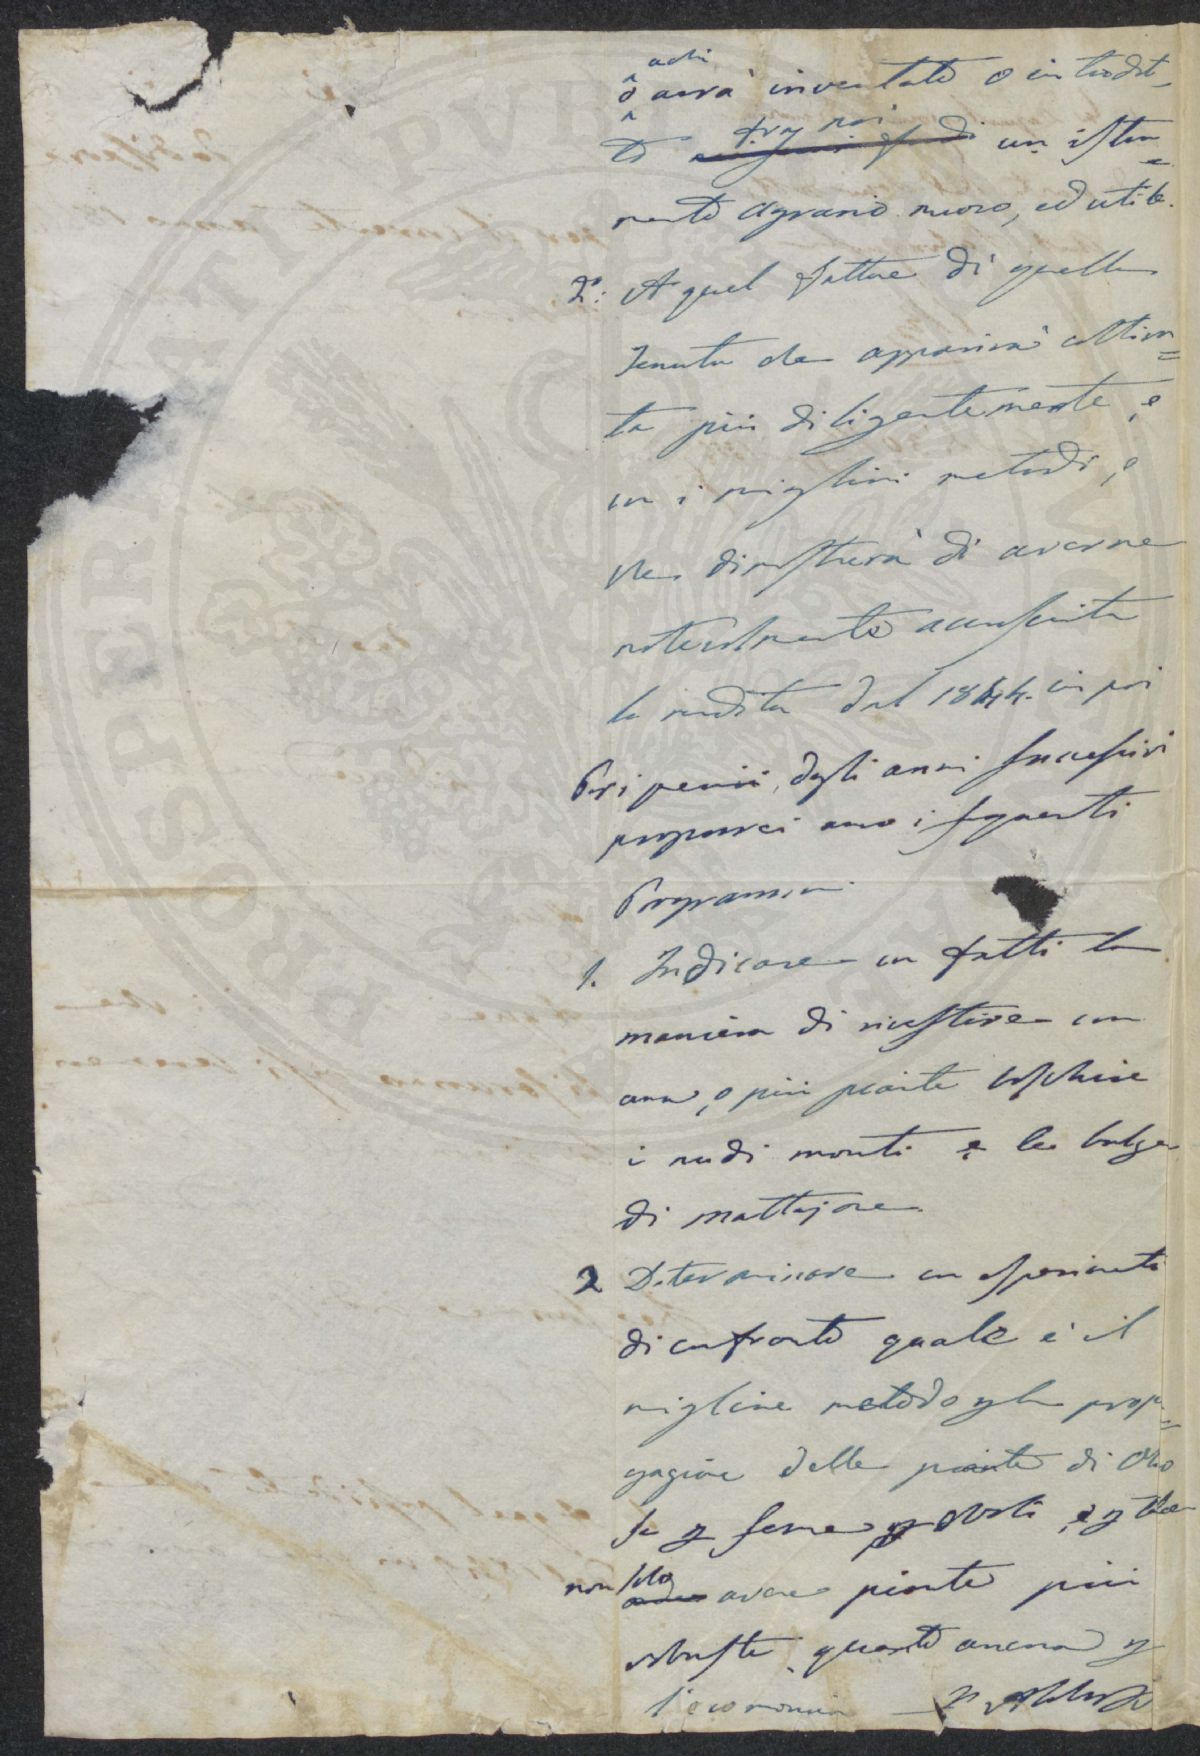 o a chi avrà inventato o introdot-
to tra noi un istru
mento agrario nuovo, ed utile.
2°: A quel fattore di quella
tenuta che apparirà coltiva=
ta più diligentemente, e
con i migliori metodi, e
che dimostrerà di averne
notevolmente accresciuta
la rendita dal 1844. in poi
Per i premii, degli anni successivi
proporrei uno i seguenti
Programmi
1. Indicare con fatti la
maniera di rivestire con
una, o più piante boschive
i nudi monti e le balze
di mattajone
2 Determinare con esperimenti
di confronto quale è il
migliore metodo per la propa=
gazione delle piante di Olivo
se per seme per ovoli, e per talee
non solo avere piante più
robuste, quanto ancora per
l'economia